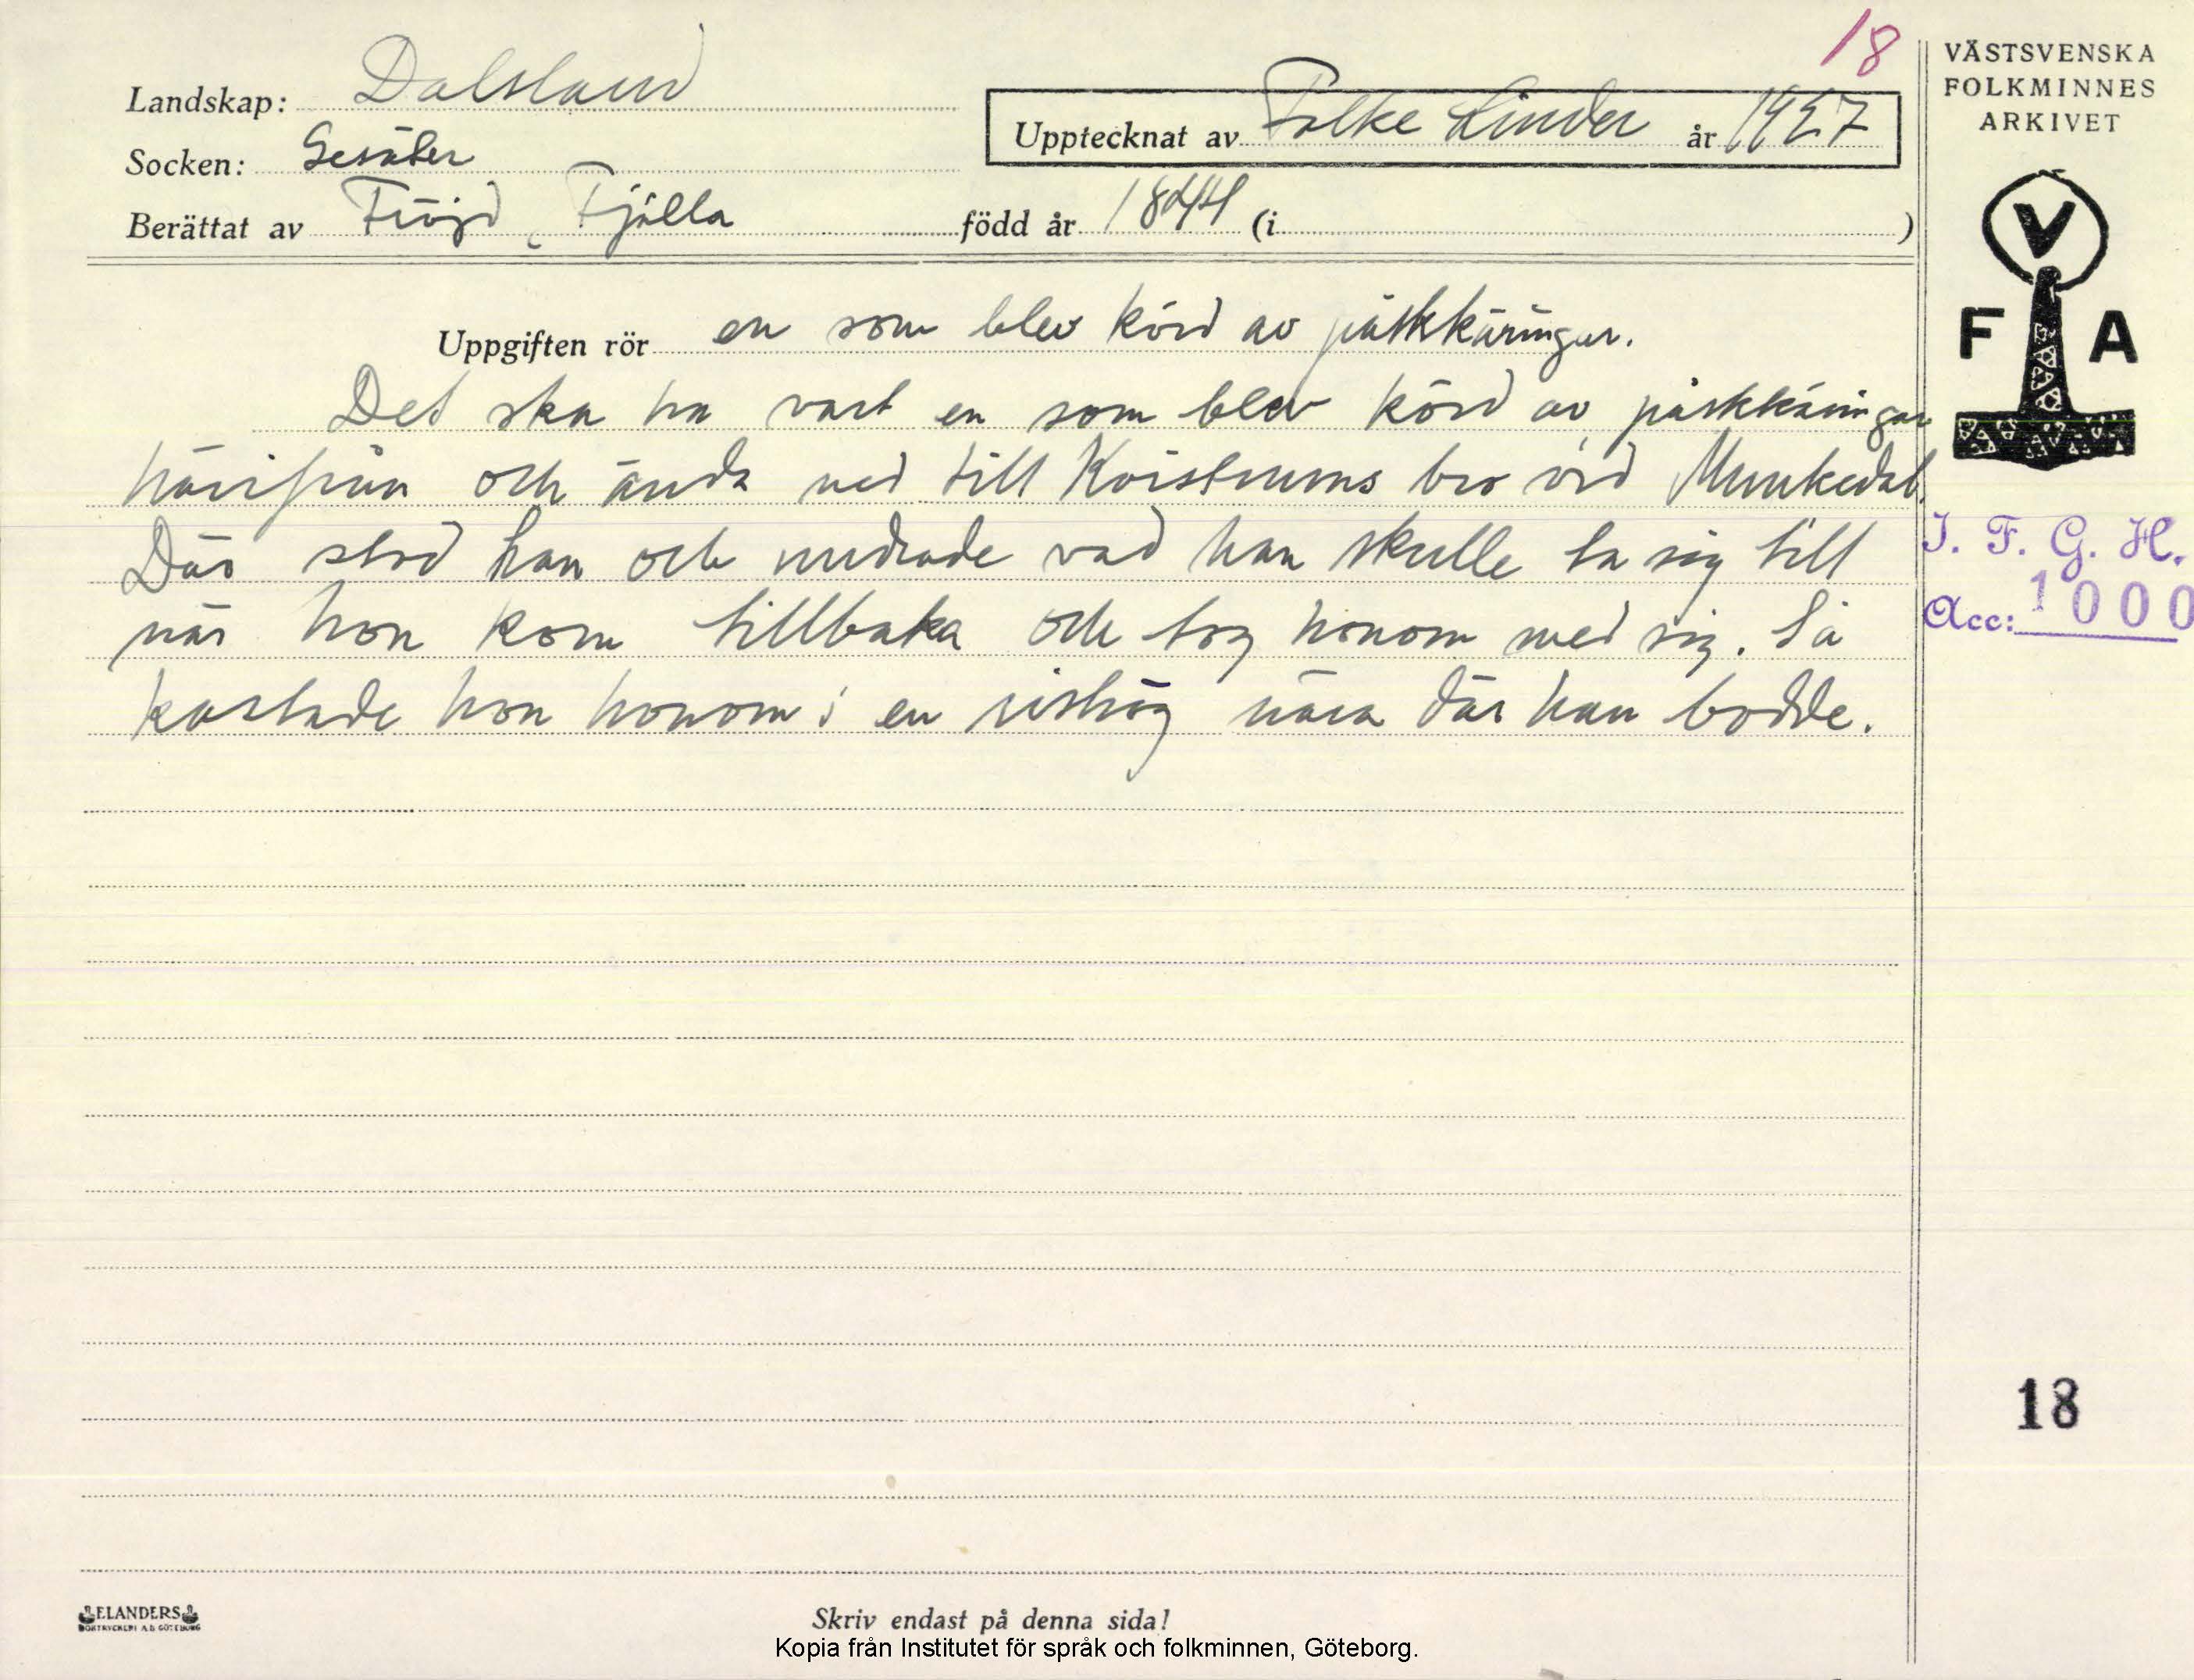 18
VÄSTSVENSKA
FOLKMINNES
ARKIVET
Landskap: Dalsland
Upptecknat av Folke Linder år 1927
Socken: Gesäter
Berättat av Fröjd, Fjälla född år 1844 (i )
V
F A
Uppgiften rör en som blev körd av påskkäringar.
Det ska ha vart en som blev körd av påskkäringar
härifrån och ända ned till Kviströms bro vid Munkedal.
Där stod han och undrade vad han skulle ta sig till
när hon kom tillbaka och tog honom med sig. Så
kastade hon honom i en rishög nära där han bodde.
I. F. G. H.
Acc: 1000
18
ELANDERS
BOKTRYCKERI A.B GÖTEBORG
Skriv endast på denna sida!
Kopia från Institutet för språk och folkminnen, Göteborg.